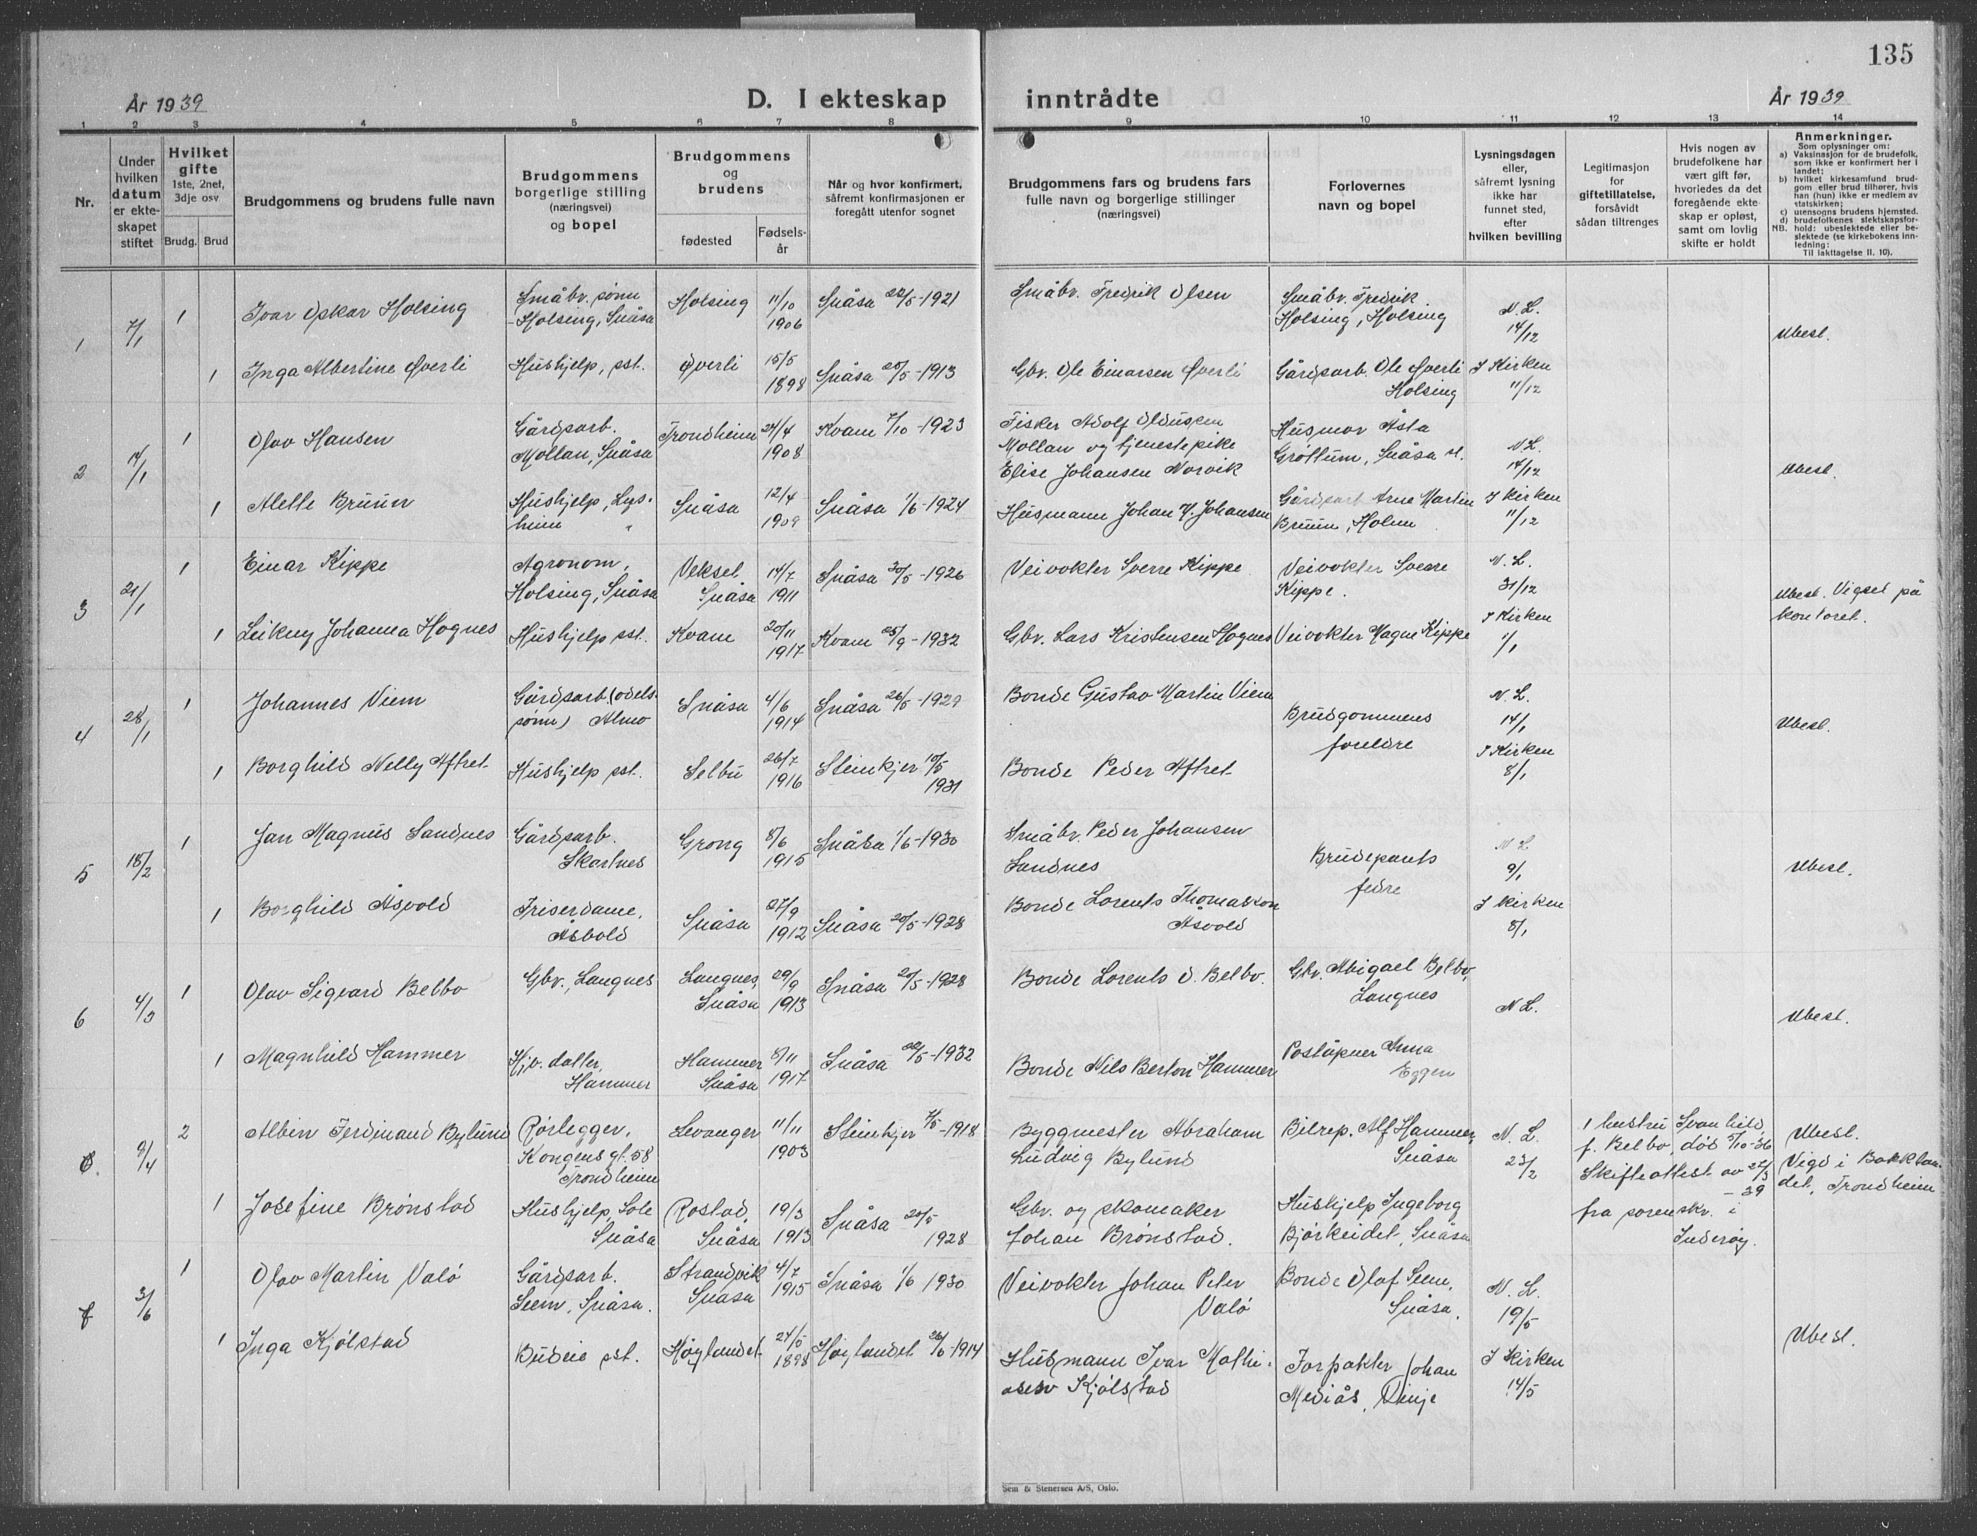 135
År 1939
D. I ekteskap
inntrådte
År 1939
1 2 3 4 5 6 7 8 9 10 11 12 13 14
Nr.
Under
hvilken
datum
er ekte-
skapet
stiftet
Hvilket
gifte
1ste, 2net,
3dje osv
Brudg. Brud
Brudgommens og brudens fulle navn
Brudgommens
borgerlige stilling
(næringsvei)
og bopel
Brudgommens
og
brudens
fødested
Fødsels-
år
Når og hvor konfirmert,
såfremt konfirmasjonen er
foregått utenfor sognet
Brudgommens fars og brudens fars
fulle navn og borgerlige stillinger
(næringsvei)
Forlovernes
navn og bopel
Lysningsdagen
eller,
såfremt lysning
ikke har
funnet sted,
efter
hvilken bevilling
Legitimasjon
for
giftetillatelse,
forsåvidt
sådan tiltrenges
Hvis nogen av
brudefolkene har
vært gift før,
hvoriedes da det
foregående ekte-
skap er opløst,
samt om lovlig
skifte er holdt
Anmerkninger.
Som oplysninger om:
a) Vaksinasjon for de brudefolk,
som ikke er konfirmert her i
landet;
b) hvilket kirkesamfund brud-
gom eller brud tilhører, hvis
han (hun) ikke er medlem av
statskirken;
c) utensogns brudens hjemsted.
d) brudefolkenes slektskapsfor-
NB. hold: ubeslektede eller be-
slektede (se kirkebokens inn-
ledning:
Til iakttagelse II. 10).
1 7/1 1 Ivar Oskar Holsing
Småbr. sønn
Holsing, Snåsa
Holsing 11/10
1906
Snåsa 22/5-1921
Småbr. Fredrik Olsen
Småbr. Fredrik
Holsing, Holsing
N. L.
14/12
Ubesl.
1 Inga Albertine Øverli
Hushjelp, sst.
Øverli 15/5
1898
Snåsa 25/5-1913
Gbr. Ole Einarsen Øverli
Gårdsarb. Ole Øverli
Holsing
I Kirken
11/12
2 14/1 1 Olav Hansen
Gårdsarb.
Mollan, Snåsa
Trondheim 24/4
1908
Kvam 7/10-1923
Fisker Adolf
Mollan og tjenestepike
Elise Johansen Norvik
Husmor Åsta
Grøttum, Snåsa
N. L.
14/12
Ubesl.
1 Alette Bruun
Hushjelp, Lys-
heim "
Snåsa 12/4
1909
Snåsa 1/6-1924
Husmann Johan Johansen
Gårdsarb Arne Martin
Bruun, Holum
I Kirken
11/12
3 21/1 1 Einar Kippe
Agronom,
Holsing, Snåsa
Veksel
Snåsa
14/7
1911
Snåsa 30/5-1926
Veivokter Sverre Kippe
Veivokter Sverre
Kippe.
N. L.
31/12
Ubesl. Vigsel på
kontoret.
1 Leikny Johanna Hognes
Hushjelp sst.
Kvam 20/11
1917
Kvam 25/9-1932
Gbr. Lars Kristensen Hognes
Veivokter Magne Kippe
I Kirken
1/1
4 28/1 1 Johannes Viem
Gårdsarb. (odels-
sønn) Almo
Snåsa 4/6
1914
Snåsa 26/5-1929
Bonde Gustav Martin Viem
Brudgommens
foreldre
N. L.
14/1
Ubesl.
1 Borghild Nelly Aftret
Hushjelp sst.
Selbu 26/7
1916
Steinkjer 10/5
1931
Bonde Peder Aftret
I Kirken
8/1
5 18/2 1 Jan Magnus Sandnes
Gårdsarb.
Skartnes
Grong 8/6
1915
Snåsa 1/6-1930
Småbr. Peder Johansen
Sandnes
Brudeparets
fedre
N L
9/1
Ubesl.
1 Borghild Åsvold
Friserdame,
Åsbold
Snåsa 27/9
1912
Snåsa 20/5-1928
Bonde Lorents Thomasson
Åsvold
I Kirken
8/1
6 4/3 1 Olav Sigvard Belbo
Gbr., Langnes
Langnes,
Snåsa
29/9
1913
Snåsa 20/5-1928
Bonde Lorents O. Belbo.
Gbr. Abigael Belbo,
Langnes
N L.
Ubesl.
1 Magnhild Hammer
Hjv. datter,
Hammer
Hammer
Snåsa
8/11
1917
Snåsa 22/5-1932
Bonde Nils Berton Hammer
Poståpner Anna
Eggen
9/4 2 Albin Ferdinand Bylund
Rørlegger,
Kongensgt. 58
Trondheim
Levanger 11/11
1903
Steinkjer 7/5-1918
Byggmester Abraham
Ludvig Bylund
Bilrep. Alf Hammer,
Snåsa
N. L.
23/2
1 hustru Svanhild,
f. Belbo, død 5/10-36
Skifteattest av 27/3
-39
fra sorenskr. i
Inderøy.
Ubesl.
Vigd i Bakklan-
det, Trondheim
1 Josefine Brønstad
Hushjelp, Sole
Snåsa
Rostad,
Snåsa
19/3
1913
Snåsa 20/5
1928
Gbr. og skomaker
Johan Brønstad.
Hushjelp Ingeborg
Bjørkeidet, Snåsa
3/6 1 Olav Martin Valø
Gårdsarb.
Seem, Snåsa.
Strandvik
Snåsa
4/7
1915
Snåsa 1/6 1930
Veivokter Johan Peter
Valø
Bonde Olaf Seem,
Snåsa.
N. L.
19/5
Ubesl.
1 Inga Kjølstad
Budeie sst.
Høylandet 24/5
1898
Høylandet 26/6-1914
Husmann Ivar Mathi-
asesv Kjølstad
Forpakter Johan
Mediås,
I Kirken
14/5
Sem & Stenersen A/S, Oslo.